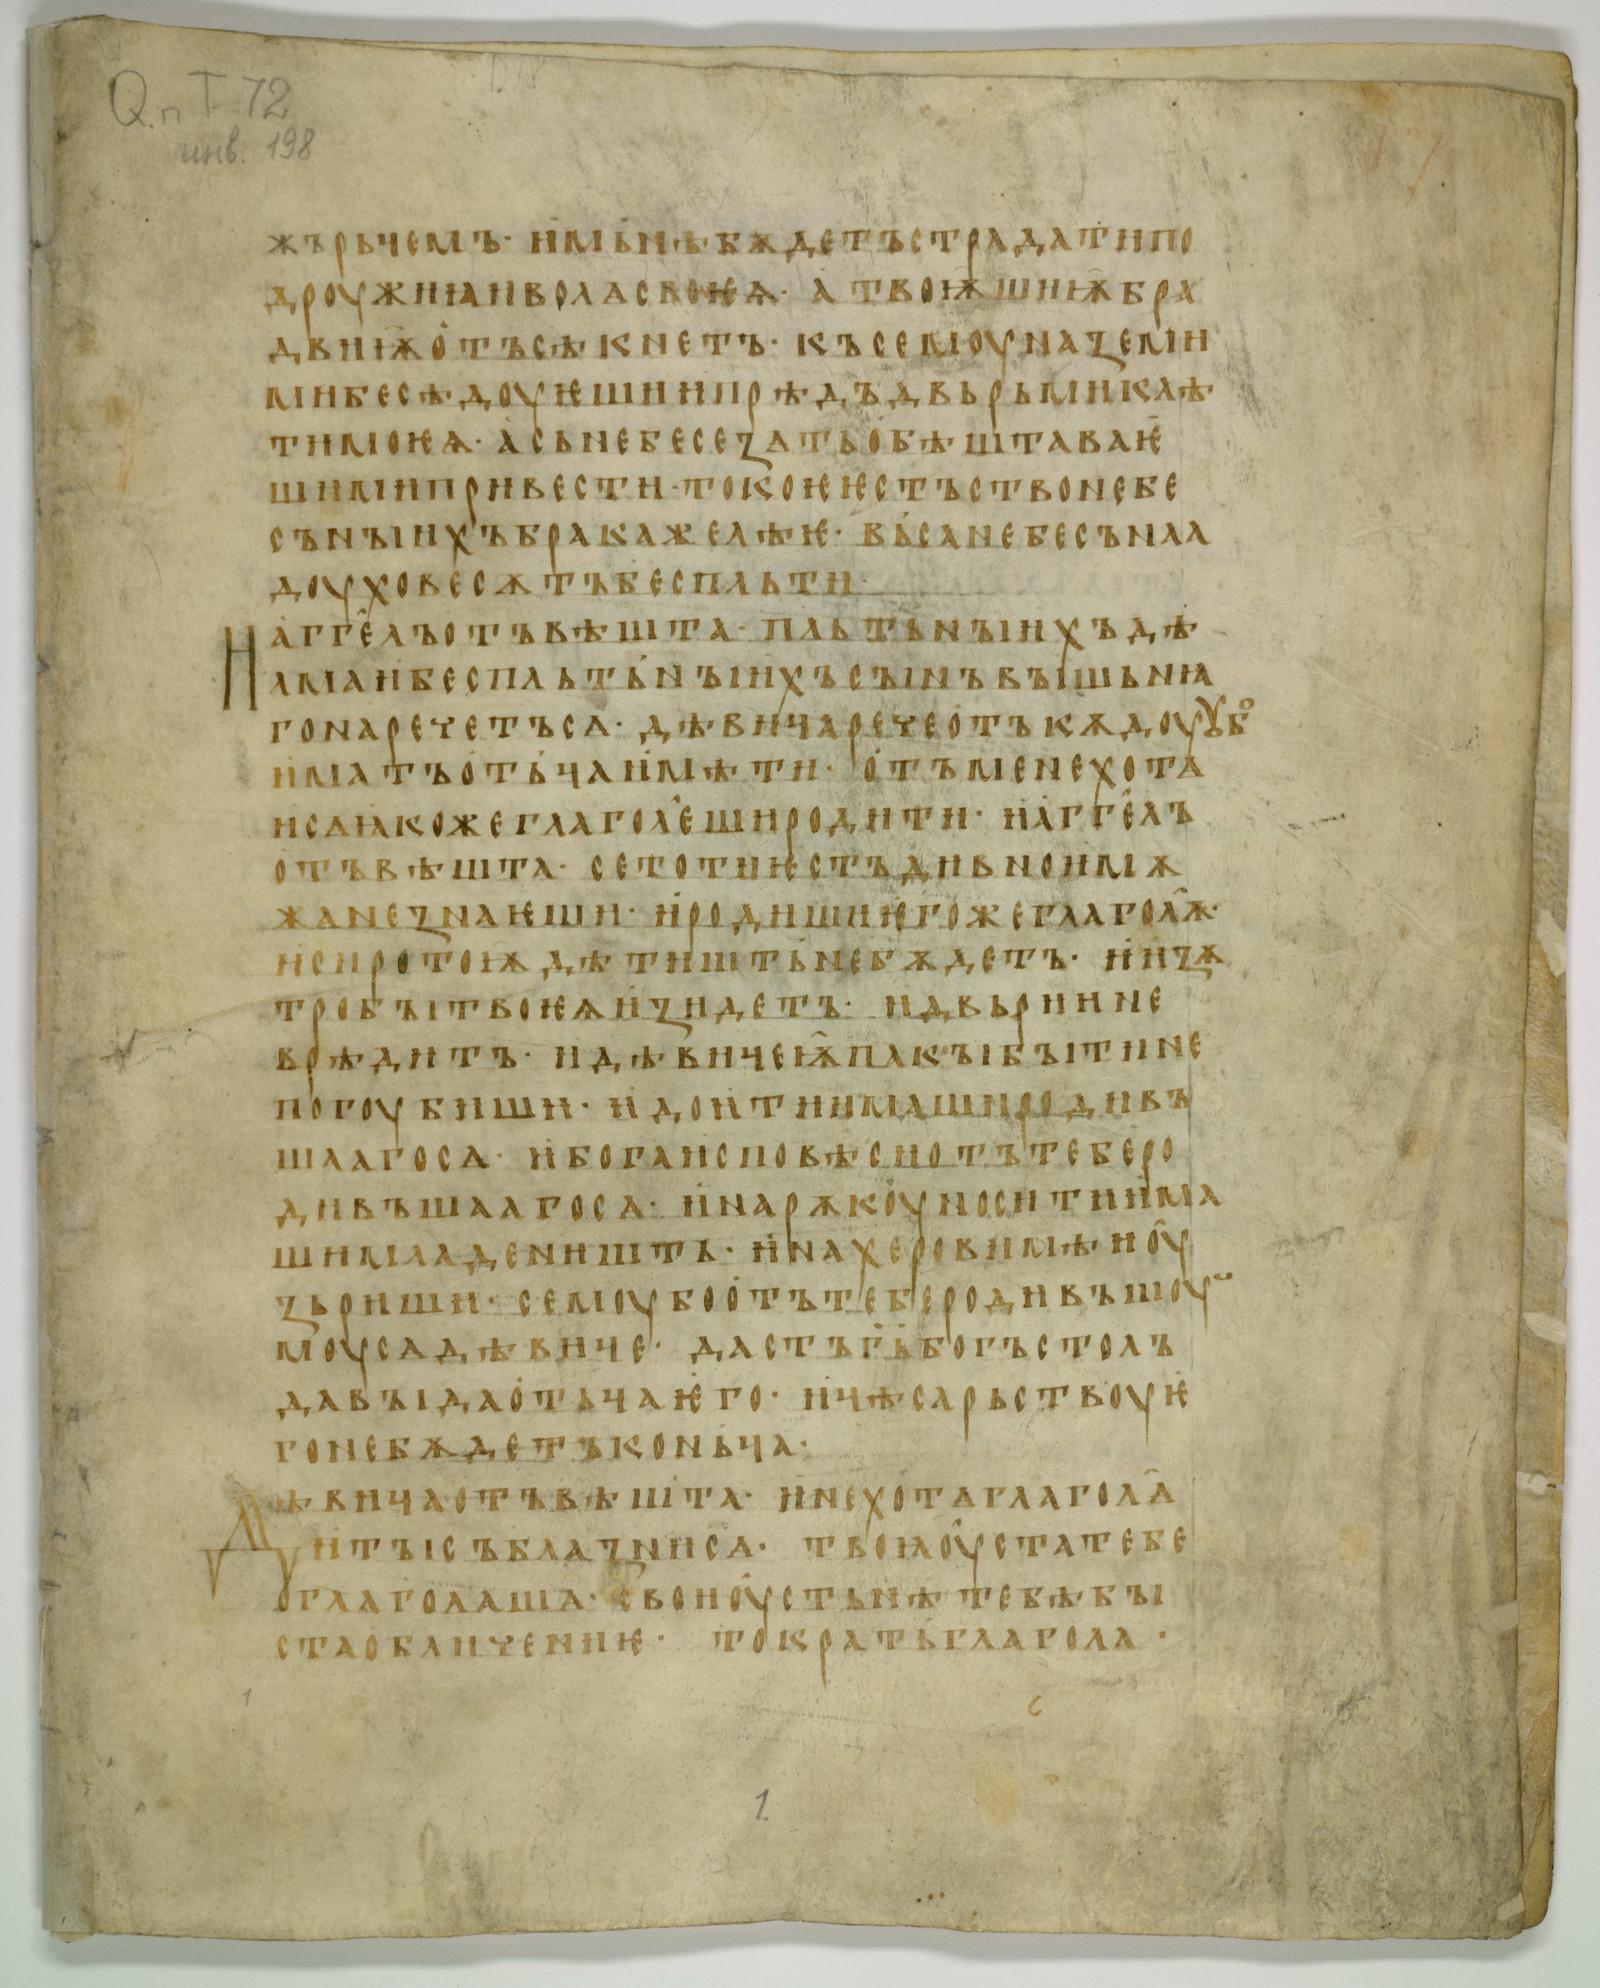 Q.п I 72
инв. 198
жърьчемъ· и мьнѣ бѫдетъ страдати по
дроужиꙗ и волꙗ своѥѧ· а твоѭ шиѭ бра
двиѭ отъсѣкнетъ· къ семоу на ꙁеми
ми бесѣдоуѥши и прѣдъ двьрьми клѣ
ти моѥѧ· а сь небесе ꙁать обѣштаваѥ
ши ми привести· то коѥ ѥстъство небе
съныихъ брака желѣѥ· вьса небесънаа
доуховесѫтъ бес пльти·
И аггелъ отъвѣшта· пльтьныихъ дѣ
лма и беспльтьныихъ сынъ вышьнꙗ
го наречетъ са· дѣвича рече отъкѫдоу оубо
имать отьча имѣти· отъ мене хота
и са ꙗкоже глаголеши родити· и аггелъ
отъвѣшта· се то ти ѥстъ дивьно и мѫ
жа не ꙁнаѥши· и родиши ѥгоже глаголѭ·
и сиротоѭ дѣтишть не бѫдетъ· и иꙁ ѫ
тробы твоѥѧ иꙁидетъ· и двьрии не
врѣдитъ· и дѣвичеѭ пакы быти не
погоубиши· и доити имаши родивъ
шааго са· и бога исповѣси отъ тебе ро
дивъшааго са· и на рѫкоу носити има
ши младеништь· и на херовимѣ и оу
ꙁьриши· семоу бо отъ тебе родивъшоу
моу са дѣвиче· дастъ гь богъ столъ
давыда отьча ѥго· и чѣсарьствоу ѥ
го не бѫдетъ коньча·
Дѣвича отъвѣшта· и не хота глагола
и ты съблаꙁни са· твоꙗ оуста тебе
оглаголаша· свои оустьнѣ тебѣ бы
ста обличениѥ· тократь глагола·
1
6
1.